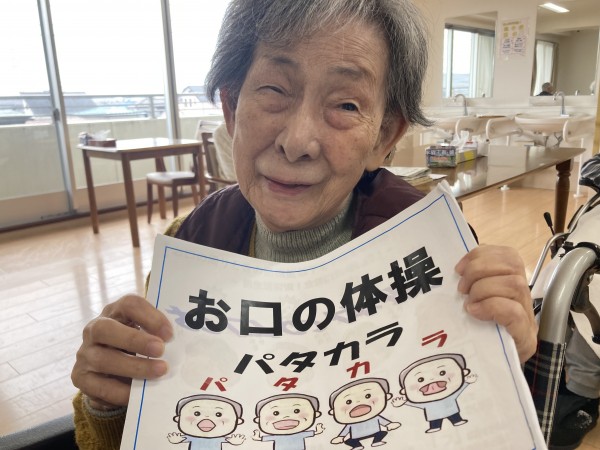 お口の体操
パタカラ
パ タ カ ラ